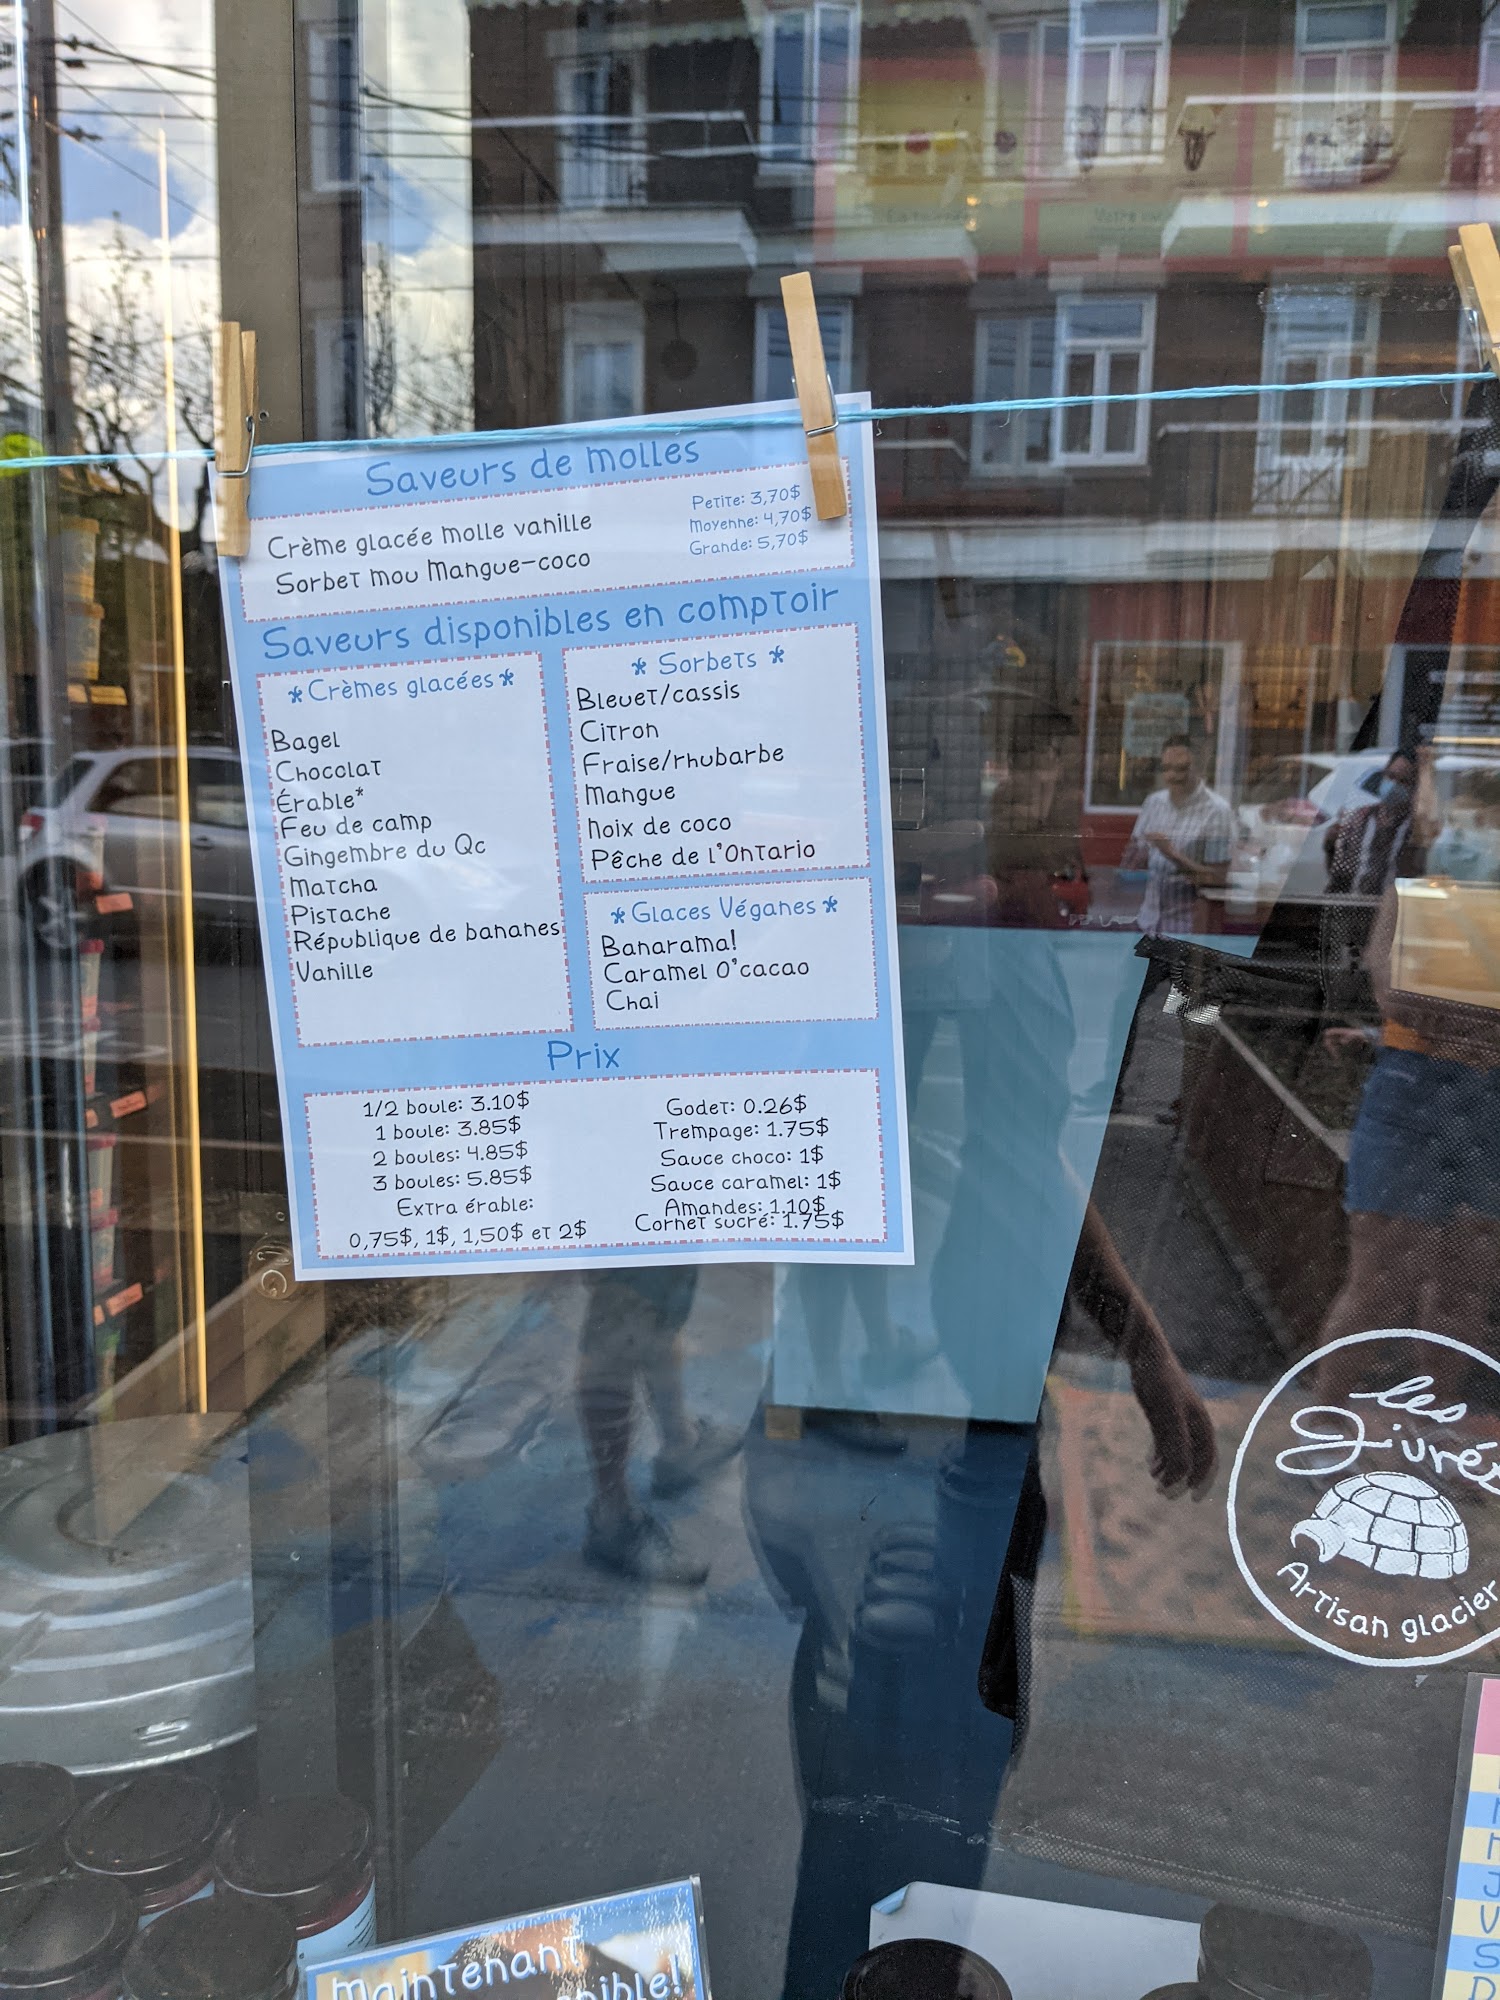 Saveurs de molles
Crème glacée molle vanille
Sorbet mou Mangue-coco
Petite: 3,70$
Moyenne: 4,70$
Grande: 5,70$
Saveurs disponibles en comptoir
* Crèmes glacées *
Bagel
Chocolat
Érable*
Feu de camp
Gingembre du Qc
Matcha
Pistache
République de bananes
Vanille
* Sorbets *
Bleuet/cassis
Citron
Fraise/rhubarbe
Mangue
Noix de coco
Pêche de l'Ontario
* Glaces Véganes *
Banarama!
Caramel O'cacao
Chai
Prix
1/2 boule: 3.10$
1 boule: 3.85$
2 boules: 4.85$
3 boules: 5.85$
Extra érable:
0,75$, 1$, 1,50$ et 2$
Godet: 0.26$
Trempage: 1.75$
Sauce choco: 1$
Sauce caramel: 1$
Amandes: 1.10$
Cornet sucré: 1.75$
les
Givrés
Artisan glacier
Maintenant